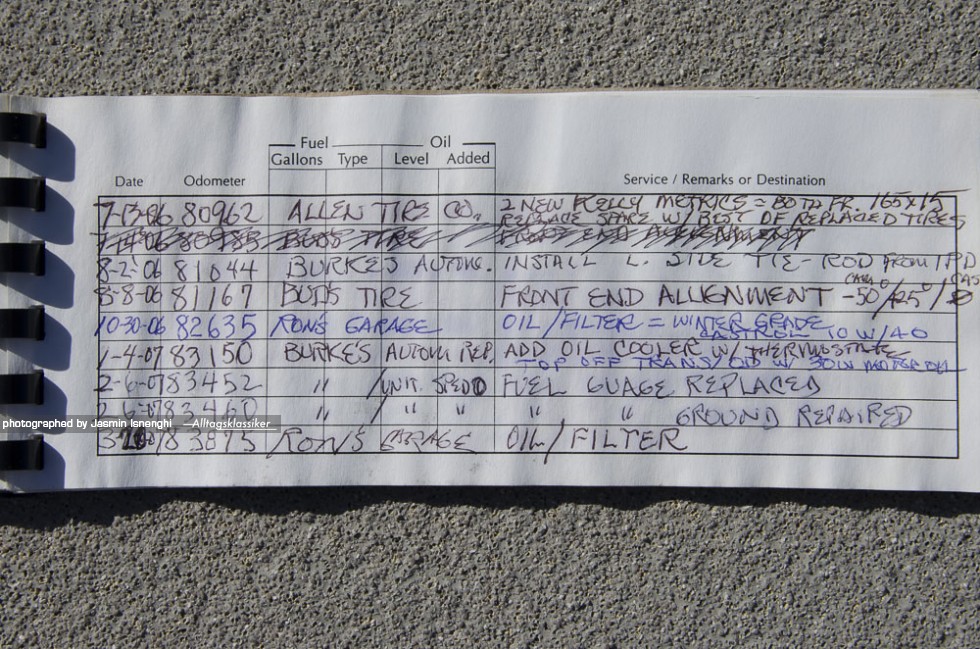 Fuel Oil
Gallons Type Level Added
Date Odometer Service / Remarks or Destination
7-13-06 80962 ALLEN TIRE CO. 2 NEW KELLY METRICS = BOTH FR. 165X15
REPLACE SPARE W/ BEST OF REPLACED TIRES
BUD'S TIRE FRONT END ALIGNMENT
8-2-06 81044 BURKE'S AUTOMO. INSTALL L. SIDE TIE-ROD FROM
8-8-06 81167 BUD'S TIRE FRONT END ALLIGNMENT
10-30-06 82635 RON'S GARAGE OIL/FILTER = WINTER GRADE
CASTROL 10 W/40
1-4-07 83150 BURKE'S AUTOM REP. ADD OIL COOLER W/ THERMOSTATE
TOP OFF TRANS/OD W/ 30W MOTOR OIL
2-6-07 83452 " /UNIT. SPEDO FUEL GUAGE REPLACED
2-6-07 83460 " / " " " " GROUND REPAIRED
83875 RON'S GARAGE OIL/FILTER
photographed by Jasmin Isnenghi —Alltagsklassiker